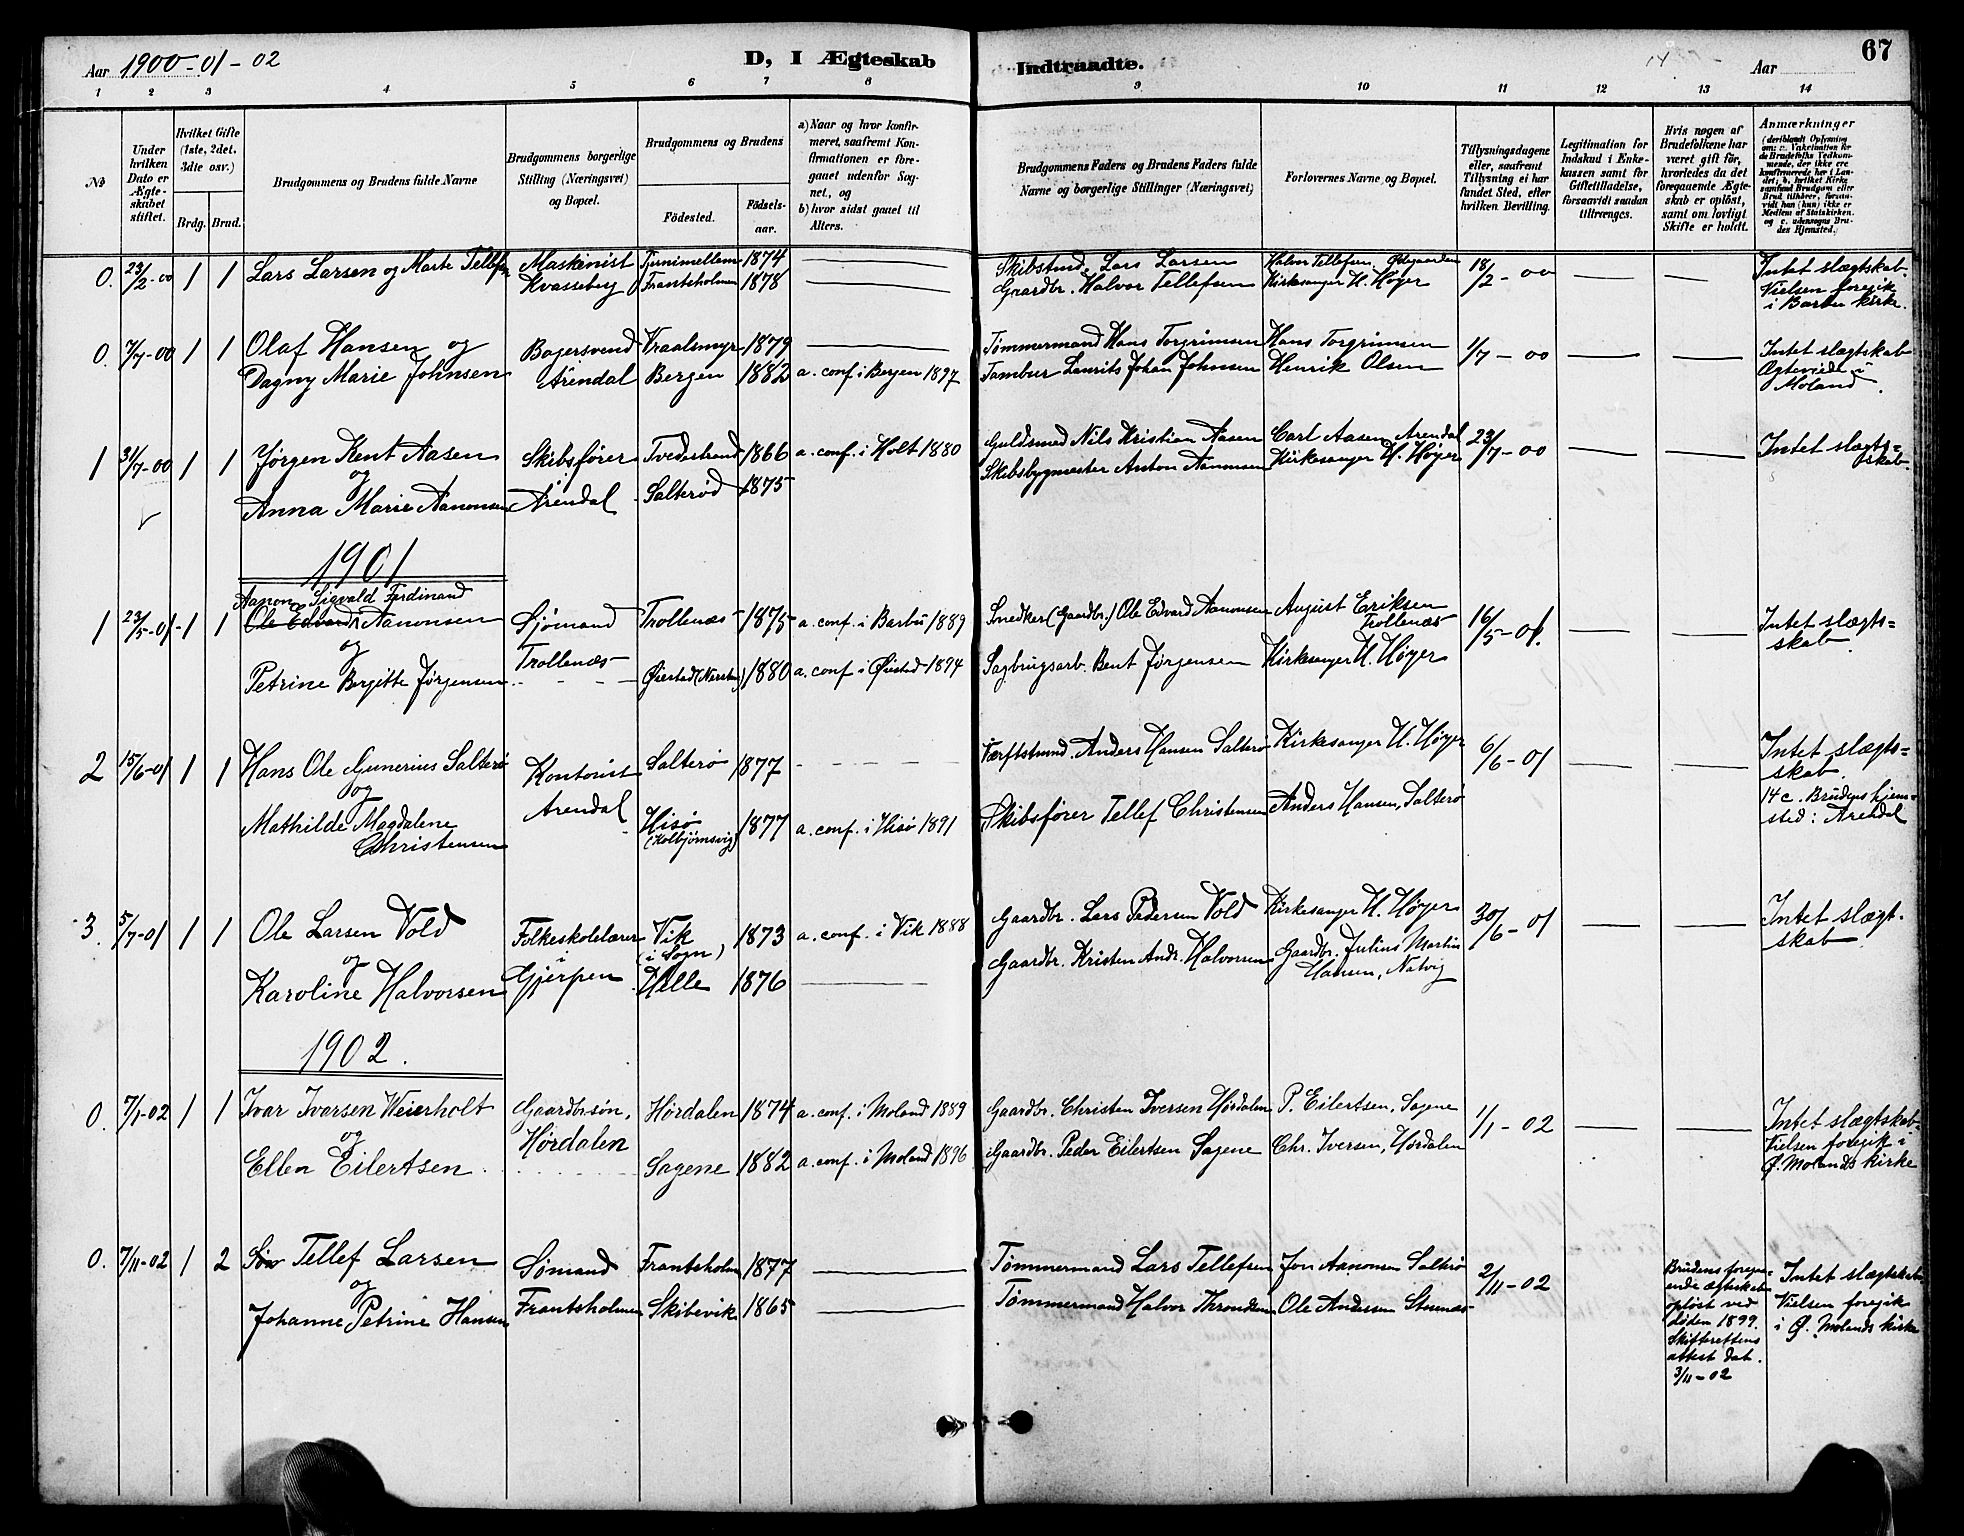 Aar 1900-01-02
D, I Ægteskab Indtraadte.
Aar
67
1 2 3 4 5 6 7 8 9 10 11 12 13 14
№
Under hvilken Dato er Ægteskabet stiftet.
Hvilket Gifte (1ste, 2det, 3die osv.)
Brdg. Brud.
Brudgommens og Brudens fulde Navne
Brudgommens borgerlige Stilling (Næringsvei) og Bopæl.
Brudgommens og Brudens
Födested.
Födselsaar.
a) Naar og hvor konfirmeret, saafremt Konfirmationen er foregaaet udenfor Sognet, og
b) hvor sidst gaaet til Alters.
Brudgommens Faders og Brudens Faders fulde Navne og borgerlige Stillinger (Næringsvei)
Forlovernes Navne og Bopæl.
Tillysningsdagene eller, saafremt Tillysning ei har fundet Sted, efter hvilken Bevilling.
Legitimation for Indskud i Enkekassen samt for Giftetilladelse, forsaavidt saadan tiltrænges.
Hvis nogen af Brudefolkene har været gift för, hvorledes da det foregaaende Ægteskab er oplöst, samt om lovligt Skifte er holdt.
Anmærkninger
0. 23/2-00 1 1 Lars Larsen og Marte Tellefsen Maskinist 1874 Skibstmd. Lars Larsen Halvor Tellefsen 18/2-00 Intet slægtskab.
Kvasseberg Frantsholmen 1878 Gaardbr. Halvor Tellefsen Kirkesanger H. Høyer Vielsen foregik
i Barbu kirke.
0. 7/7-00 1 1 Olaf Hansen og Bagersvend Vraalsmyr 1879 Tømmermand Hans Torgrimsen Hans Torgrimsen 1/7-00 Intet slægtskab
Dagny Marie Johnsen Arendal Bergen 1882 a. conf. i Bergen 1897 Tambur Laurits Johan Johnsen Henrik Olsen Ægteviede i
Moland.
1 31/7-00 1 1 Jørgen Kent Aasen Skibsfører Tvedestrand 1866 a. conf. i Holt 1880 Guldsmed Nils Kristian Aasen Carl Aasen, Arendal 23/7-00 Intet slægts=
og Skibsbygmester Anton Aanonsen Kirkesanger H. Høyer skab.
Anna Marie Aanonsen Arendal Salterød 1875
1901
Aanon Sigvald Ferdinand
1 23/5-01 1 1 Ole Edvard Aanonsen Sjømand Trollenæs 1875 a. conf. i Barbu 1889 Snedker (Gaardbr.) Ole Edvard Aanonsen August Eriksen 16/5-01. Intet slægts=
og Trollenæs skab.
Petrine Bergitte Jørgensen Trollenæs Øiestad 1880 a. conf i Øiestad 1894 Sagbrugsarb. Bent Jørgensen Kirkesanger H. Høyer
2 15/6-01 1 1 Hans Ole Gunerius Salterø Kontorist Salterø 1877 Værftstmd. Anders Hansen Salterø Kirkesanger H. Høyer 6/6-01 Intet slægts=
og Arendal skab.
Mathilde Magdalene Hisø 1877 a. conf. i Hisø 1891 Skibsfører Tellef Christensen Anders Hansen, Salterø 14 c. Brudens hjem=
Christensen (Kolbjørnsvig) sted: Arendal
3. 5/7-01 1 1 Ole Larsen Vold Folkeskolelærer Vik 1873 a. conf. i Vik 1888 Gaardbr. Lars Pedersen Vold Kirkesanger H. Høyer 30/6-01 Intet slægt-
og i (i Sogn) Gaardbr. Kristen Andr. Halvorsen Gaardbr. Julius Martin skab
Karoline Halvorsen Gjerpen Helle 1876 Hansen, Natvig
1902.
0. 7/1-02 1 1 Ivar Iversen Weierholt Gaardbr.søn, Hørdalen 1874 a. conf. i Moland 1889 Gaardbr. Christen Iversen Hørdalen P. Eilertsen, Sagene 1/1-02 Intet slægtskab.
og Hørdalen Vielsen foregik i
Ellen Eilertsen Sagene 1882 a. conf. i Moland 1896 Gaardbr. Peder Eilertsen Sagene Chr. Iversen, Hørdalen Ø. Molands kirke
0. 7/11-02 1 2 Tellef Larsen Sømand Frantsholm 1877 Tømmermand Lars Tellefsen Jon Aanonsen Salterø 2/11-02 Brudens foregaa- Intet slægtskab
og ende ægteskab Vielsen foregik
Johanne Petrine Hansen Frantsholmen Skibevik 1865 Tømmermand Halvor Throndsen Ole Andersen opløst ved i Ø. Molands kirke
døden 1899.
Skifterettens
attest dat.
3/11-02